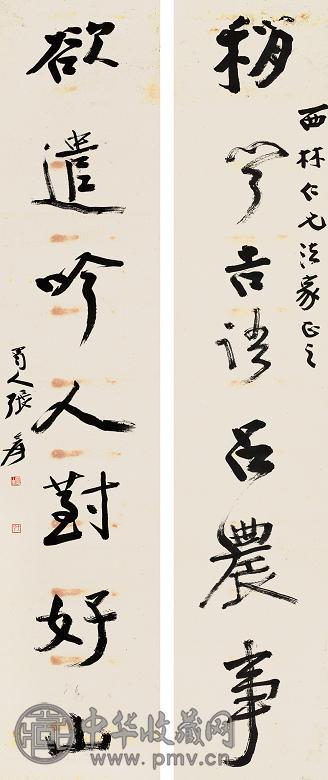 稍聞吉語占農事
西林仁兄法家正之
欲遣吟人對好山
蜀人張爰
中华收藏网
www.pmv.cn